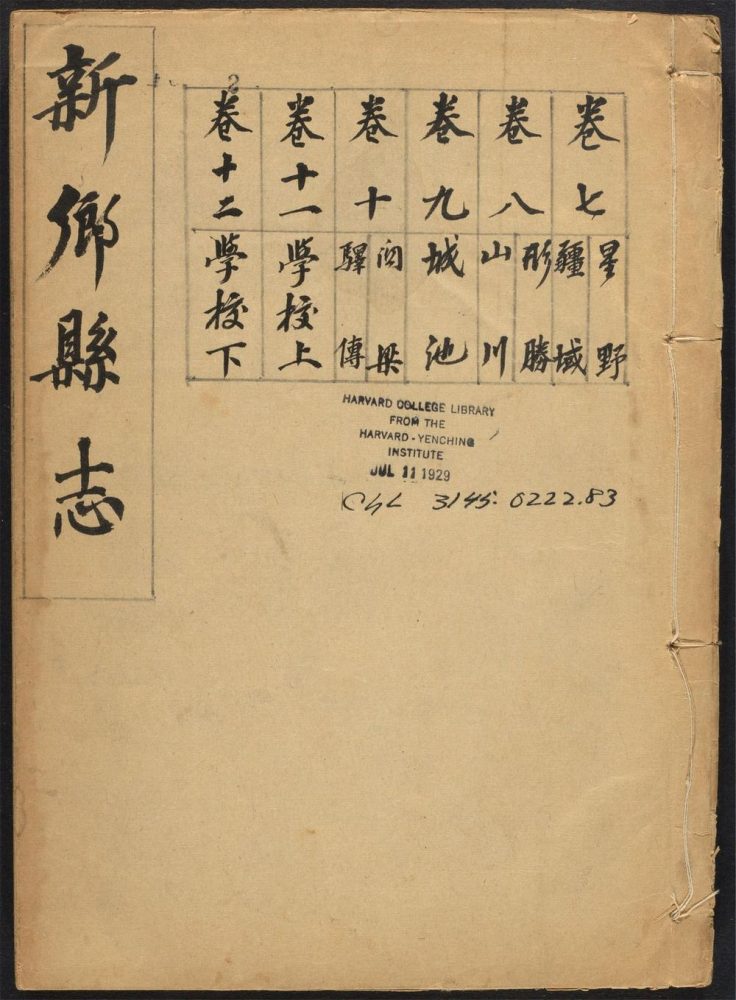 新鄉縣志
2
卷七
星野
疆域
卷八
形勝
山川
卷九
城池
卷十
関梁
驛傳
卷十一
學校上
卷十二
學校下
HARVARD COLLEGE LIBRARY
FROM THE
HARVARD-YENCHING
INSTITUTE
JUL 11 1929
3145.0222.83